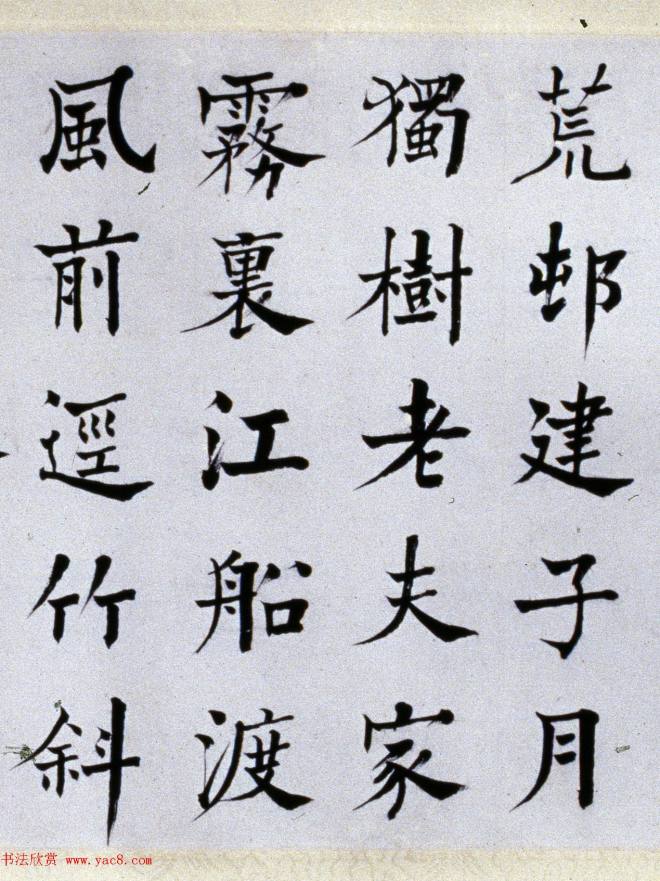 荒邨建子月
獨樹老夫家
霧裏江船渡
風前逕竹斜
书法欣赏 www.yac8.com